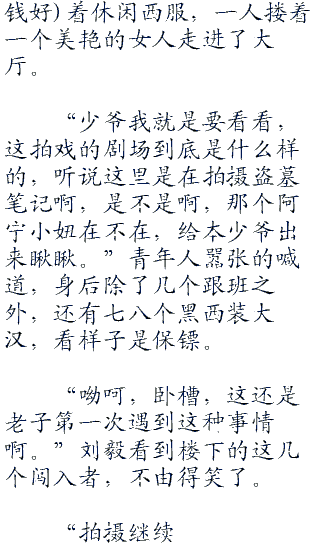 钱好)着休闲西服，一人搂着
一个美艳的女人走进了大
厅。
“少爷我就是要看看，
这拍戏的剧场到底是什么样
的，听说这里是在拍摄盗墓
笔记啊，是不是啊，那个阿
宁小妞在不在，给本少爷出
来瞅瞅。”青年人嚣张的喊
道，身后除了几个跟班之
外，还有七八个黑西装大
汉，看样子是保镖。
“呦呵，卧槽，这还是
老子第一次遇到这种事情
啊。”刘毅看到楼下的这几
个闯入者，不由得笑了。
“拍摄继续